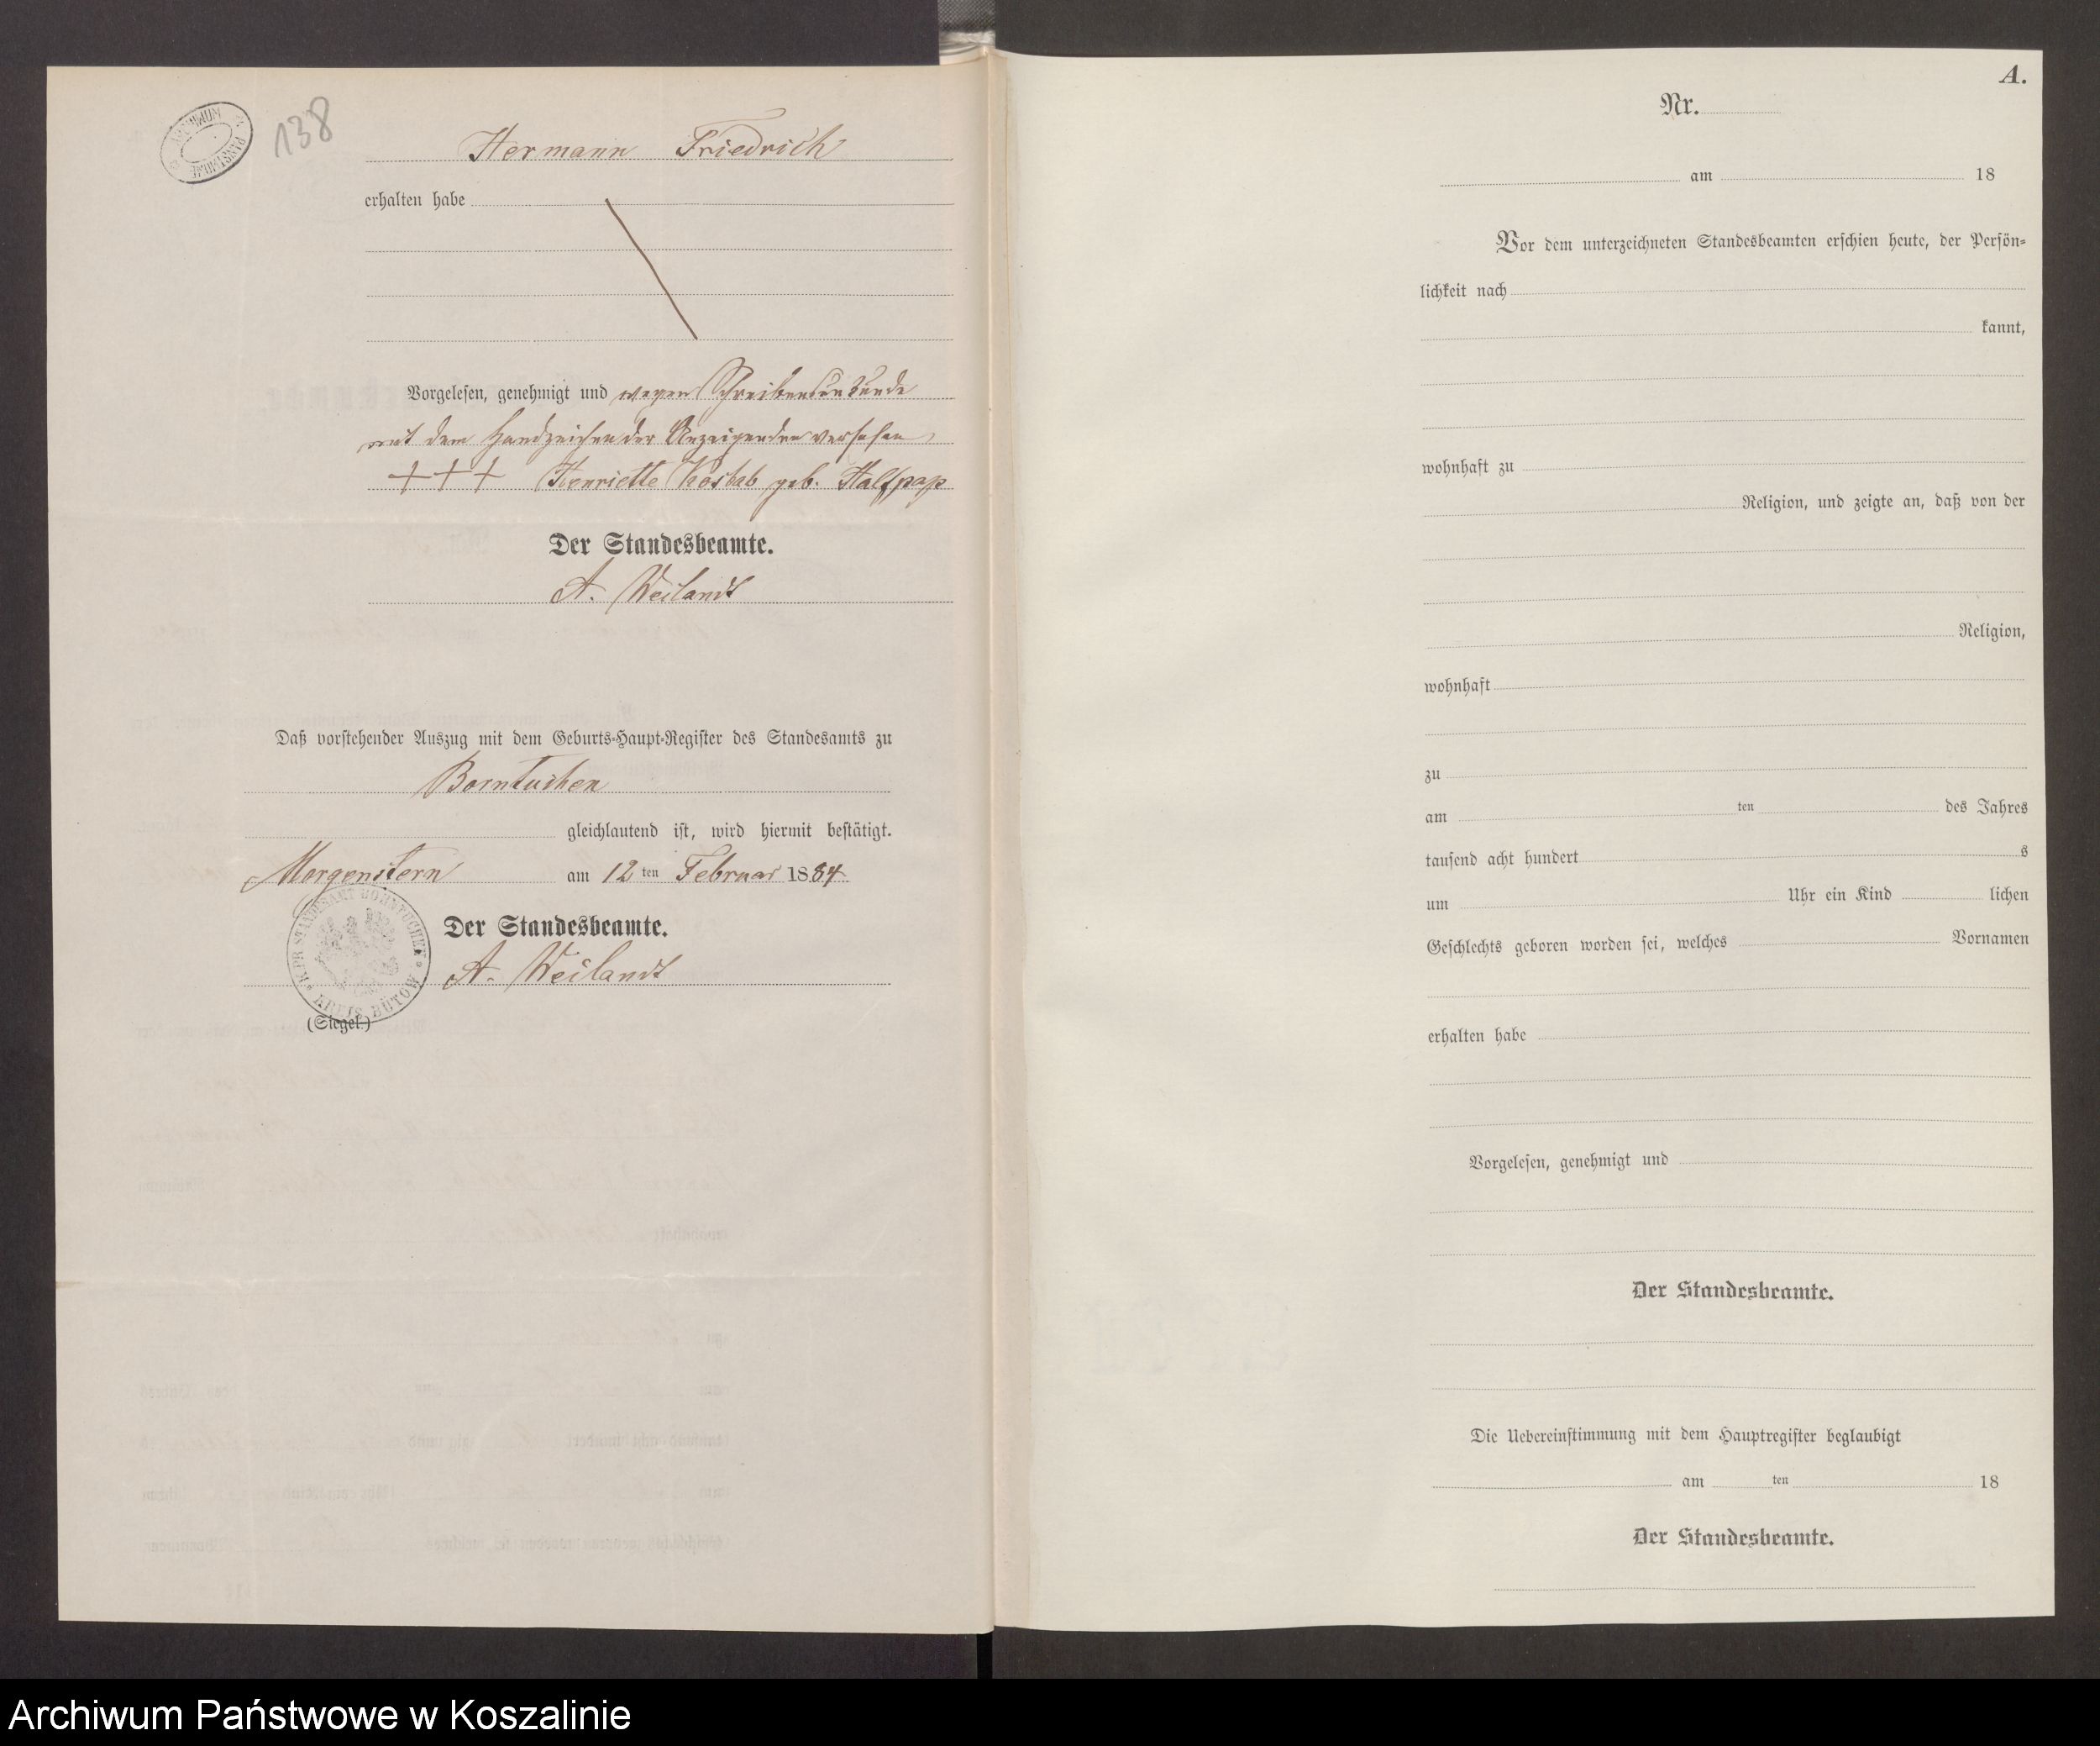 138
Hermann Friedrich
erhalten habe
Vorgelesen, genehmigt und wegen Schreibensunkunde
mit dem Handzeichen der Anzeigenden versehen
+++ Henriette Kostab geb. Halfpap
Der Standesbeamte.
A. Weilandt
Daß vorstehender Auszug mit dem Geburts-Haupt-Register des Standesamts zu
Borntuchen
gleichlautend ist, wird hiermit bestätigt.
Morgenstern am 12ten Februar 1884
K. PR. STANDESAMT BORNTUCHEN
KREIS BÜTOW
Der Standesbeamte.
A. Weilandt
(Siegel.)
A.
Nr.
am 18
Vor dem unterzeichneten Standesbeamten erschien heute, der Persön-
lichkeit nach
kannt,
wohnhaft zu
Religion, und zeigte an, daß von der
Religion,
wohnhaft
zu
am ten des Jahres
tausend acht hundert s
um Uhr ein Kind lichen
Geschlechts geboren worden sei, welches Vornamen
erhalten habe
Vorgelesen, genehmigt und
Der Standesbeamte.
Die Uebereinstimmung mit dem Hauptregister beglaubigt
am ten 18
Der Standesbeamte.
Archiwum Państwowe w Koszalinie